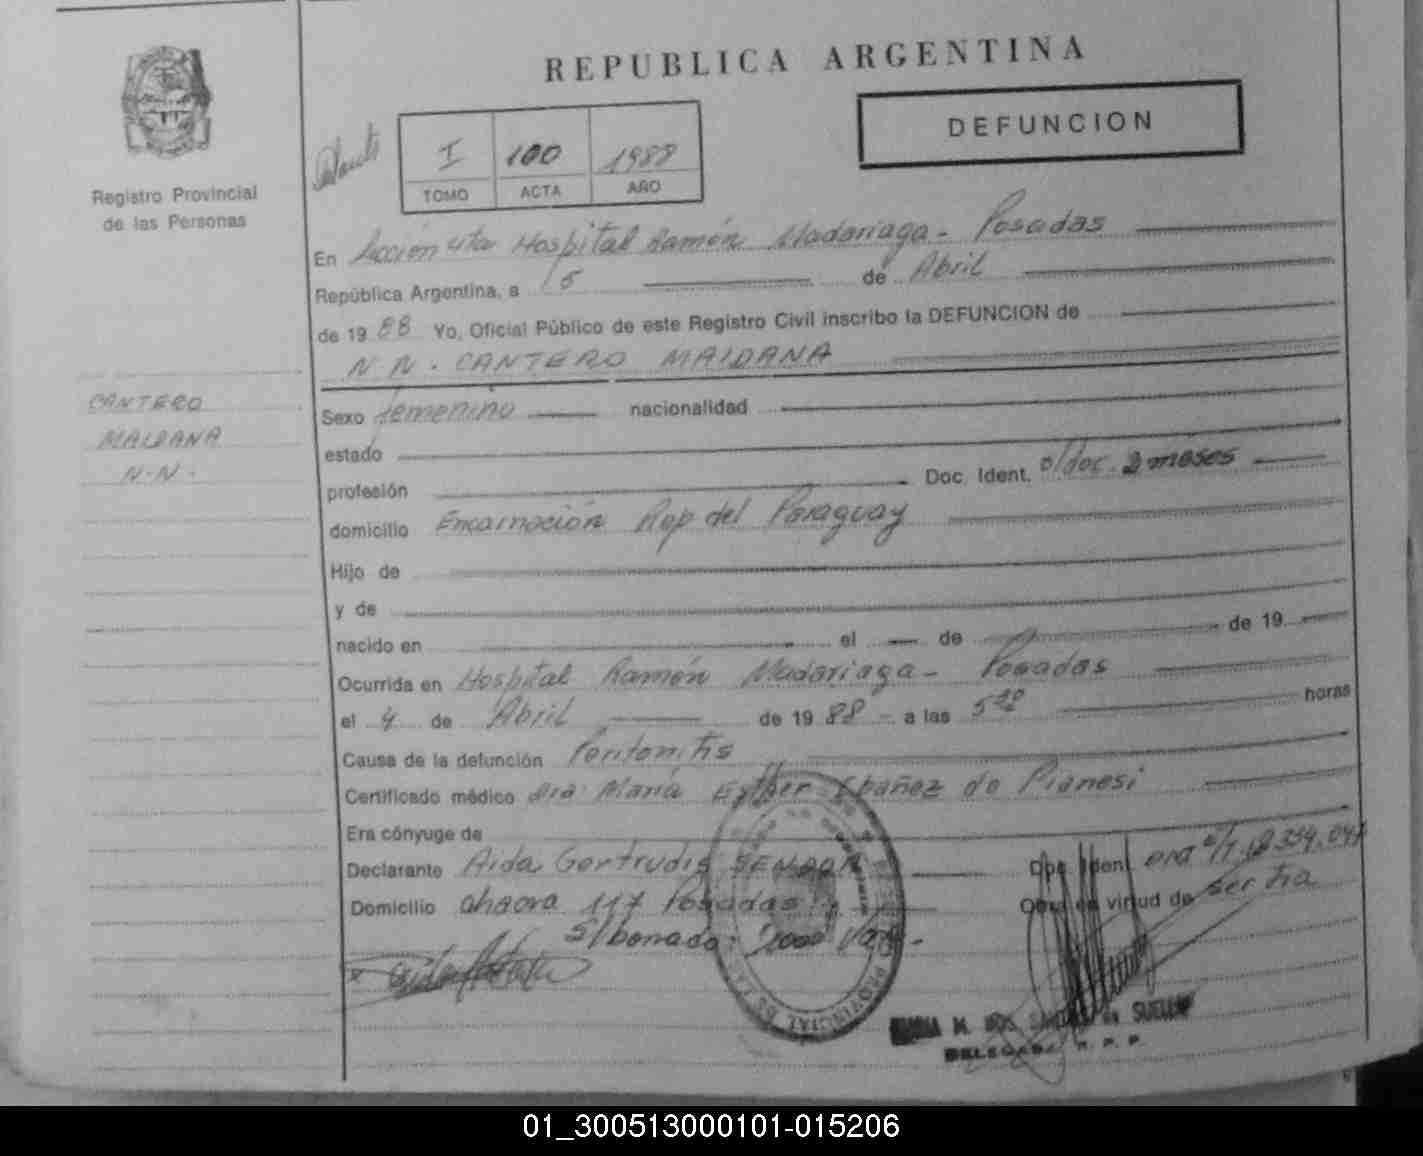 REPUBLICA ARGENTINA
DEFUNCION
I 100 1988
TOMO ACTA AÑO
Registro Provincial
de las Personas
En Sección 4ta Hospital Ramón Madariaga - Posadas
República Argentina, a 5 de Abril
de 1988 Yo, Oficial Público de este Registro Civil inscribo la DEFUNCION de
N N. CANTERO MAIDANA
CANTERO
MAIDANA
N-N.
Sexo femenino nacionalidad
estado
profesión Doc. Ident. 2 meses
domicilio Encarnación Rep del Paraguay
Hijo de
y de
nacido en el de de 19
Ocurrida en Hospital Ramón Madariaga - Posadas
el 4 de Abril de 1988 - a las 5 horas
Causa de la defunción Peritonitis
Certificado médico Dra María Esther Ibañez de Pianesi
Era cónyuge de
Declarante Aida Gertrudis Doc. Ident.
Domicilio chacra 117 Posadas Obra en virtud de ser tia
DELEGADA R. P. P.
01_300513000101-015206